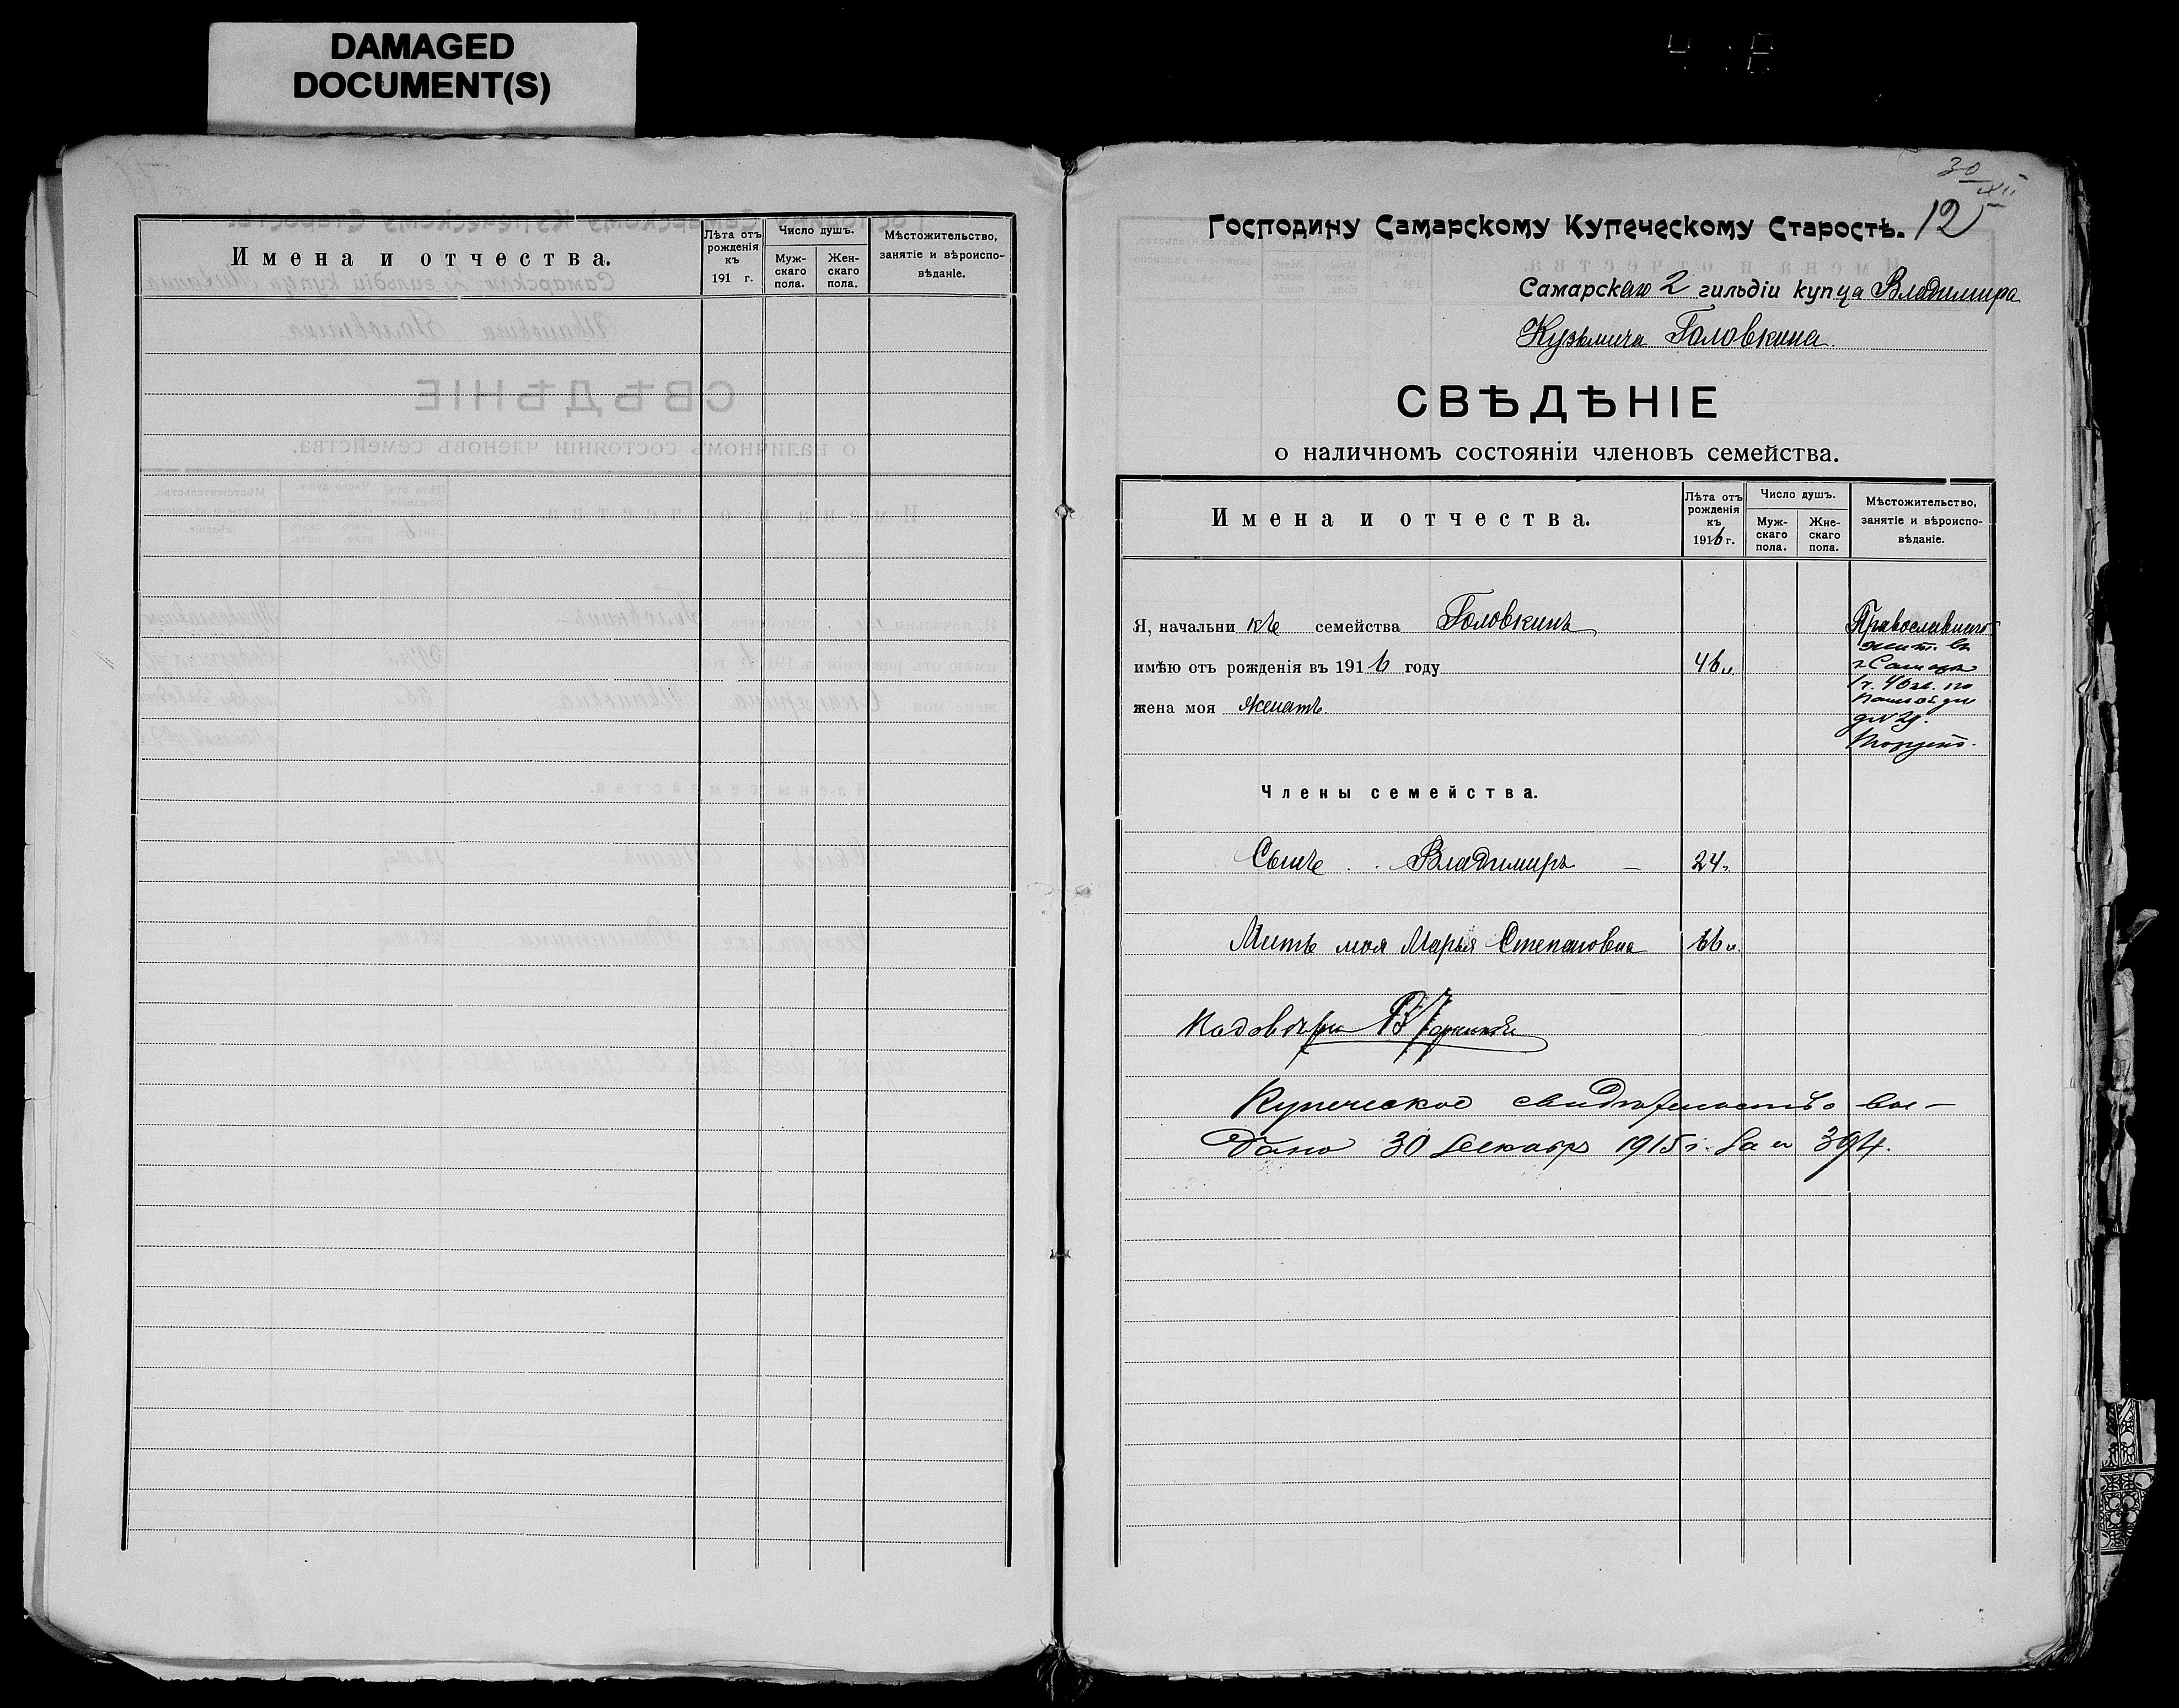 DAMAGED
DOCUMENT(S)
Имена и отчества.
Лѣта отъ рожденія къ 191 г.
Число душъ.
Муж-скаго пола.
Жен-скаго пола.
Мѣстожительство, занятіе и вѣроиспо-вѣданіе.
30
XII
Господину Самарскому Купеческому Старостѣ.
125
Самарскаго 2 гильдіи купца Владимира
Кузьмича Головкина.
СВѢДѢНІЕ
о наличномъ состояніи членовъ семейства.
Имена и отчества.
Лѣта отъ рожденія къ 1916 г.
Число душъ.
Муж-скаго пола.
Жне-скаго пола.
Мѣстожительство, занятіе и вѣроиспо-вѣданіе.
Я, начальникъ семейства Головкинъ
Православнаго
жит. въ
имѣю отъ рожденія въ 1916 году 46 л.
г. Самарѣ
жена моя женатъ.
Члены семейства.
Сынъ Владимиръ — 24
Мать моя Марья Степановна 66 л.
Купеческое свидѣтельство вы-
дано 30 Декабря 1915 г. за № 394.